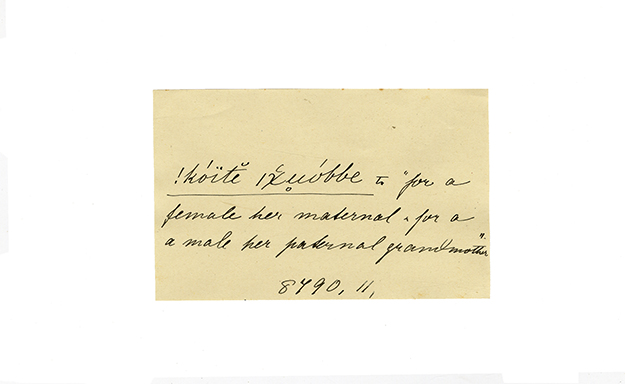 !kóïtĕ |χ̯̆u̥óbbe to "for a
female her maternal & for a
a male her paternal grandmother"
8790, 11,